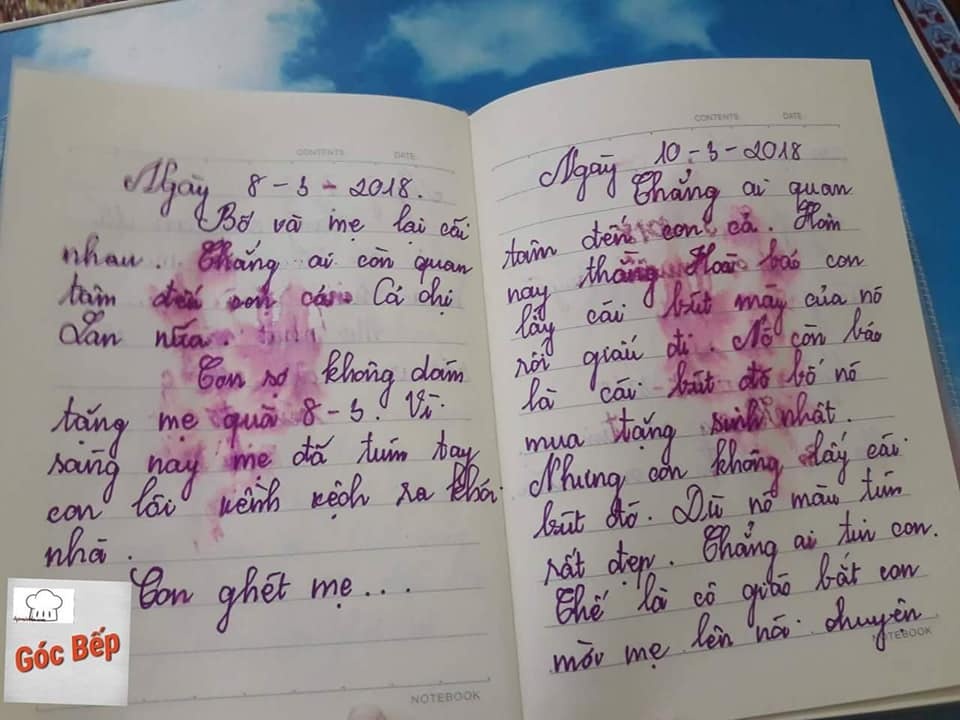 CONTENTS DATE
Ngày 8-3-2018.
Bố và mẹ lại cãi
nhau. Chẳng ai còn quan
tâm đến con cả. Cả chị
Lan nữa.
Con sợ không dám
tặng mẹ quà 8-3. Vì
sáng nay mẹ đã túm tay
con lôi xềnh xệch ra khỏi
nhà.
Con ghét mẹ...
NOTEBOOK
CONTENTS DATE
Ngày 10-3-2018
Chẳng ai quan
tâm đến con cả. Hôm
nay thằng Hoà báo con
lấy cái bút máy của nó
rồi giấu đi. Nó còn bảo
là cái bút đó bố nó
mua tặng sinh nhật.
Nhưng con không lấy cái
bút đó. Dù nó màu tím
rất đẹp. Chẳng ai tin con.
Thế là cô giáo bắt con
mời mẹ lên nói chuyện
NOTEBOOK
Góc Bếp